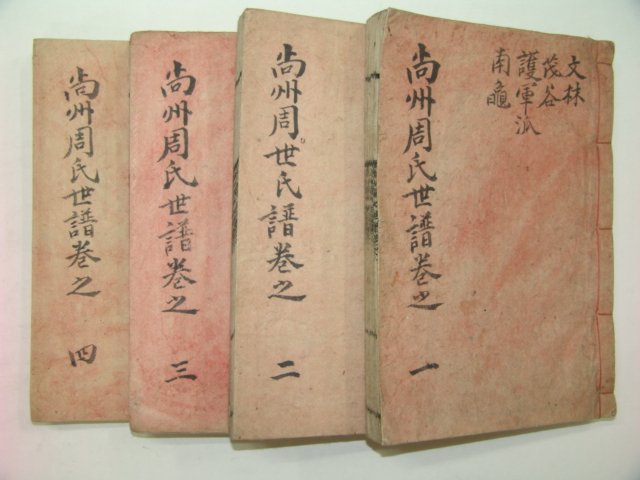 文林
茂谷
護軍派
南龜
尙州周氏世譜卷之一
尙州周世氏譜卷之二
尙州周氏世譜卷之三
尙州周氏世譜卷之四